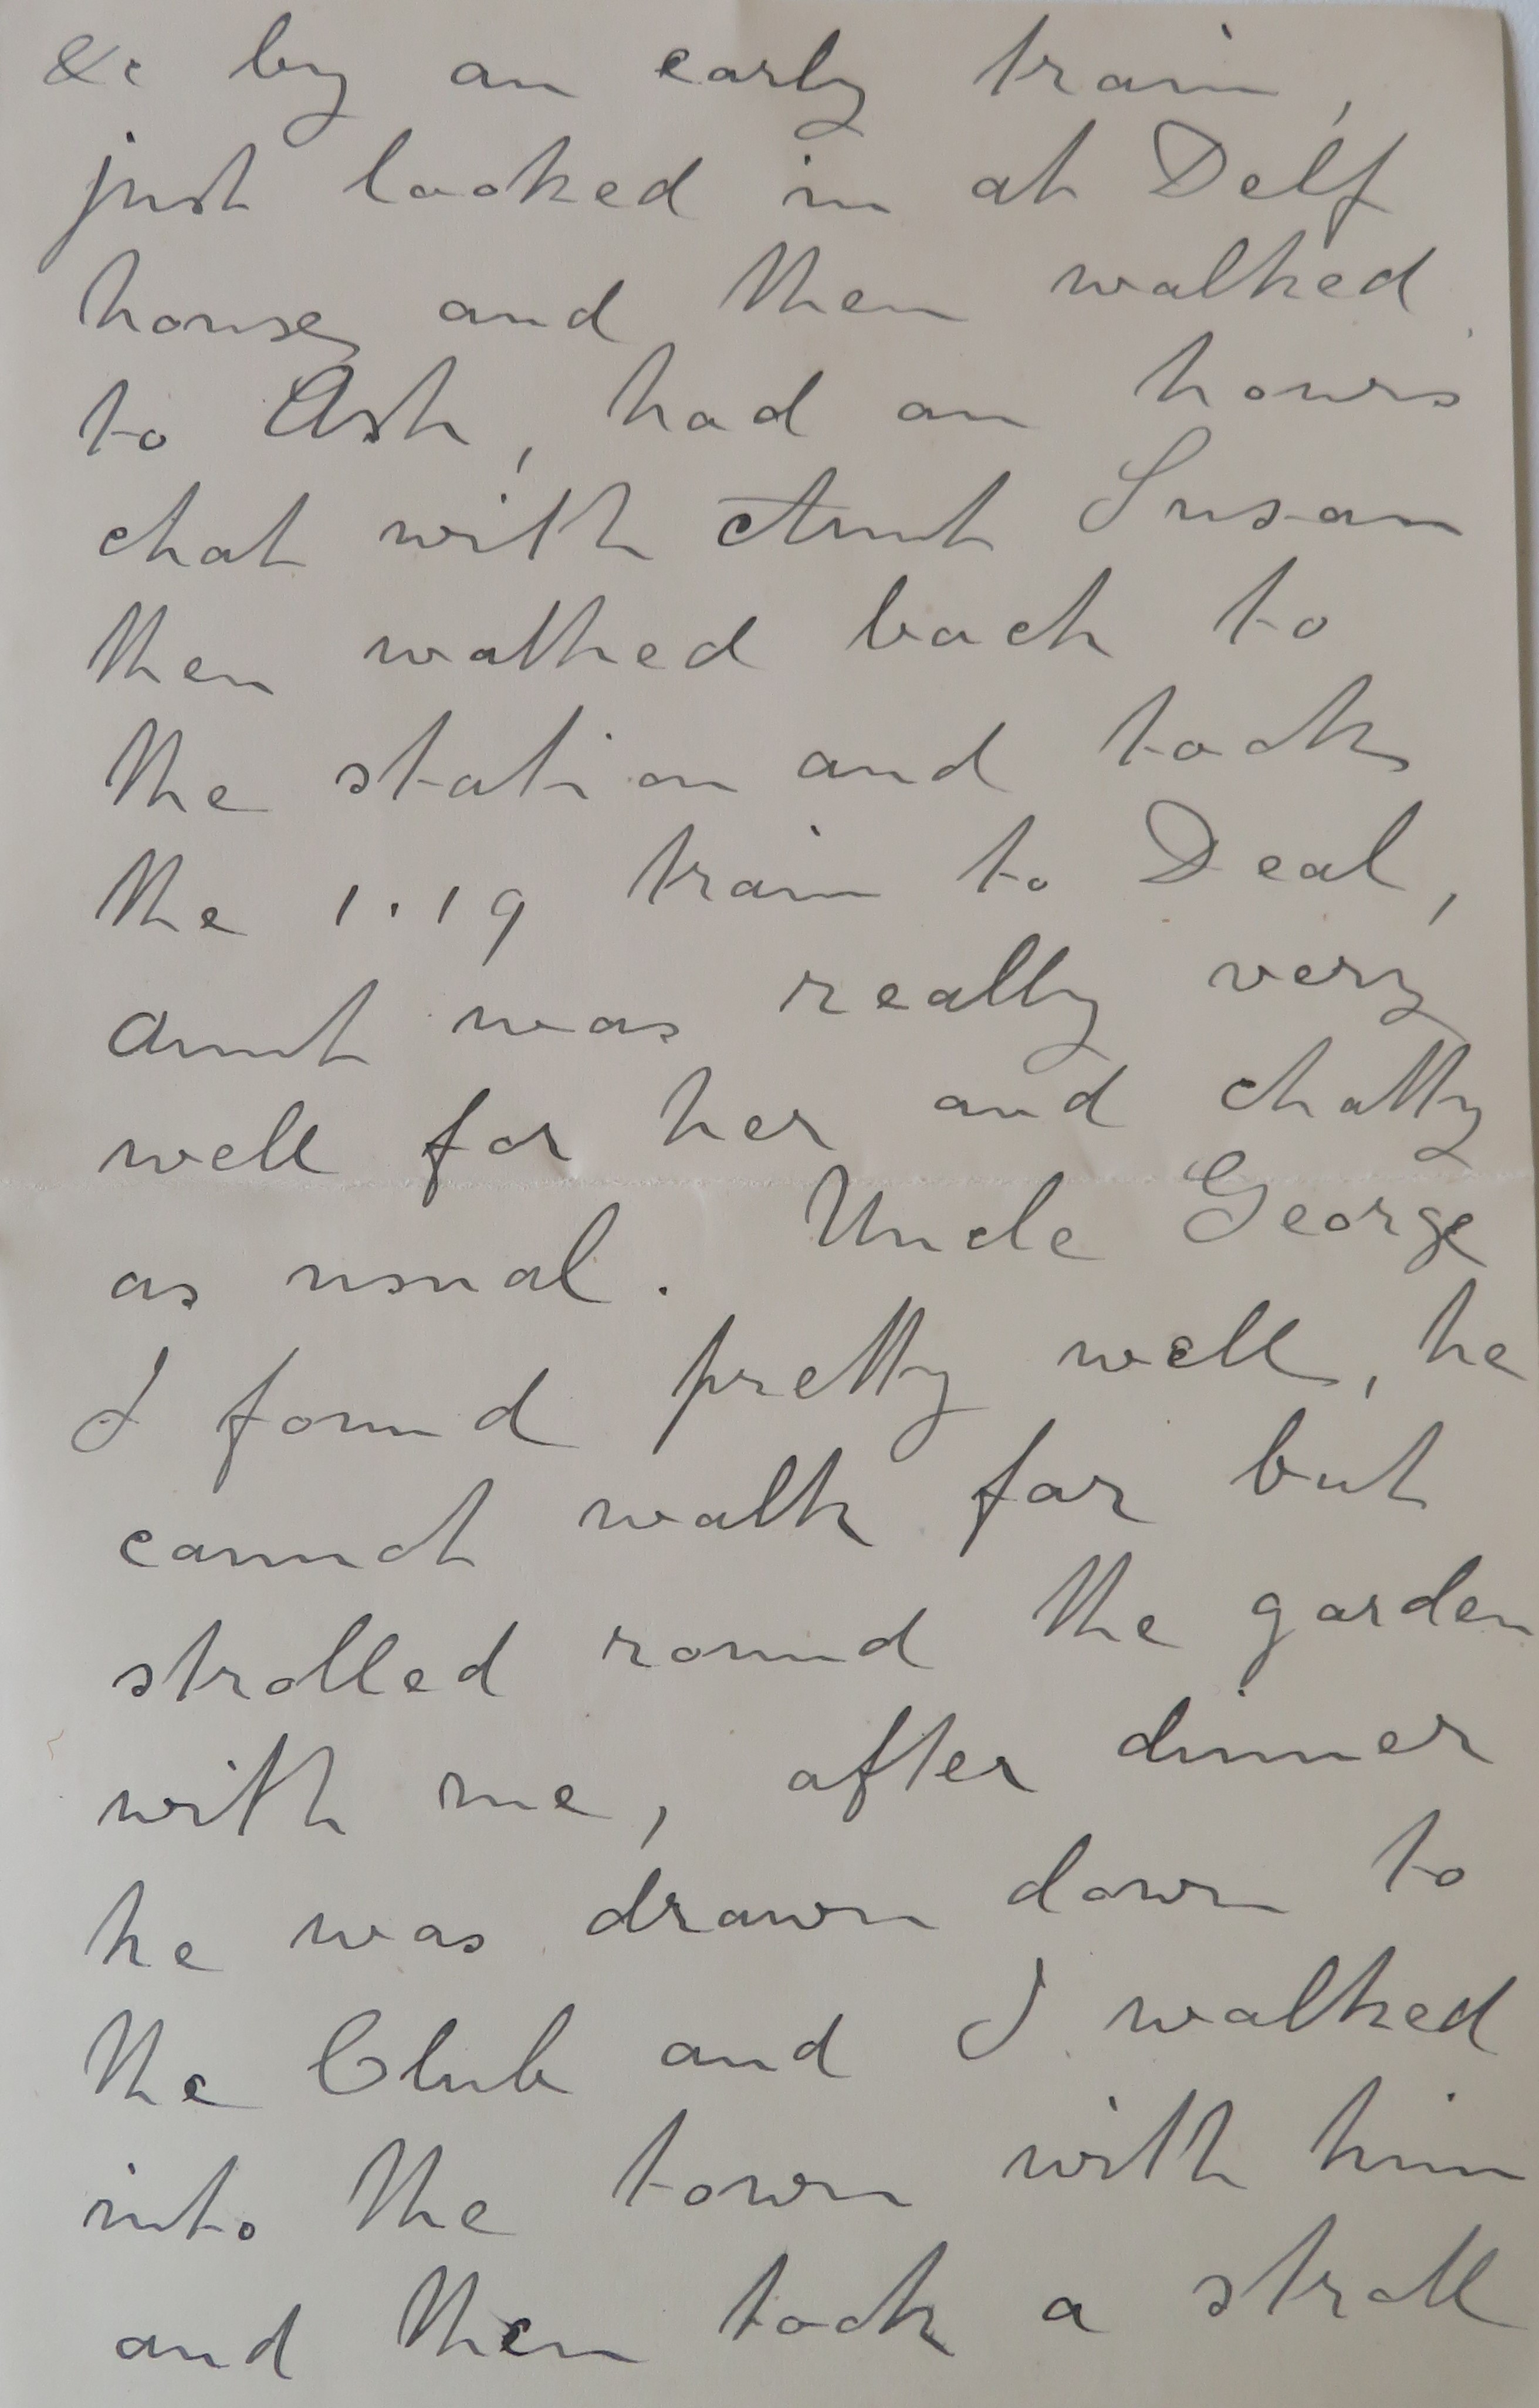 &c by an early train,
just looked in at Delf
house, and then walked
to Ash, had an hours
chat with Aunt Susan
then walked back to
the station and took
the 1.19 train to Deal,
Aunt was really very
well for her and chatty
as usual. Uncle George
I found pretty well, he
cannot walk far but
strolled round the garden
with me, after dinner
he was drawn down to
the Club and I walked
into the town with him
and then took a stroll